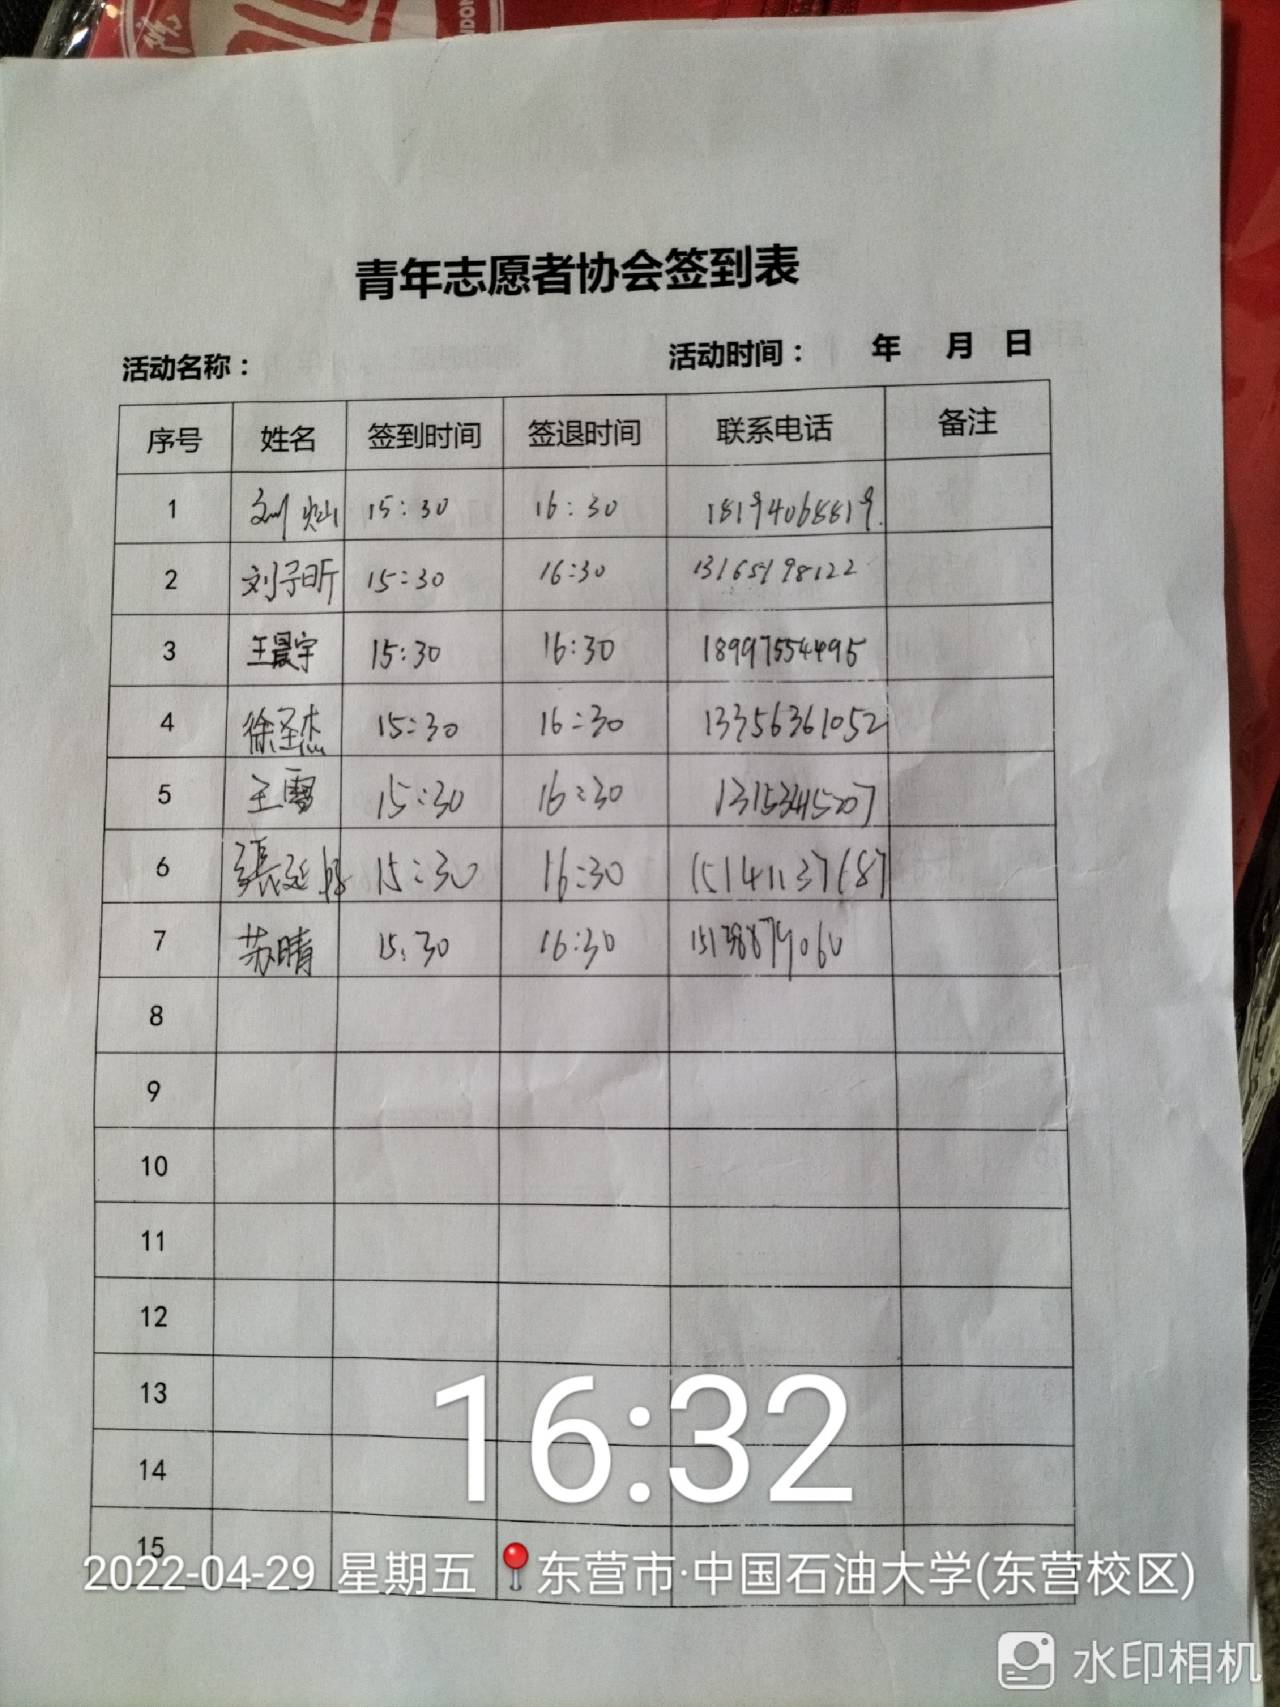 青年志愿者协会签到表
活动名称： 活动时间： 年 月 日
序号 姓名 签到时间 签退时间 联系电话 备注
1 刘灿 15:30 16:30 18194068819
2 刘子昕 15:30 16:30 13165198122
3 王晨宇 15:30 16:30 18997554495
4 徐圣杰 15:30 16:30 13356361052
5 王雪 15:30 16:30
6 張延 15:30 16:30 15141137687
7 苏晴 15:30 16:30
8
9
10
11
12
13
14
15
16:32
2022-04-29 星期五 东营市·中国石油大学(东营校区)
水印相机